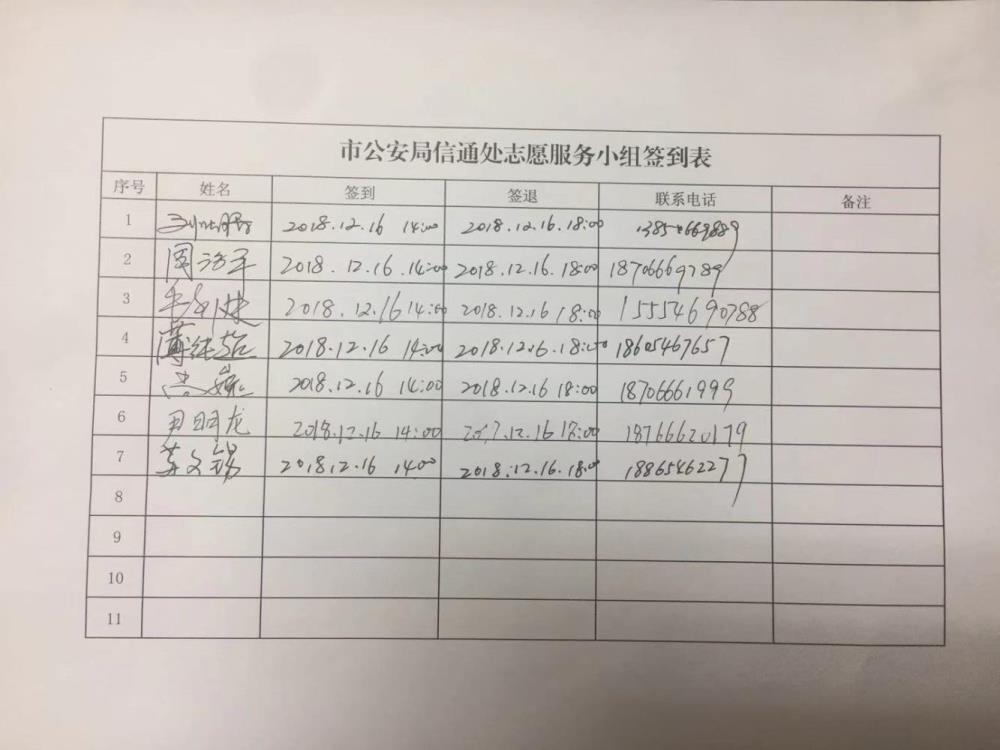 市公安局信通处志愿服务小组签到表
序号 姓名 签到 签退 联系电话 备注
1 2018.12.16 14:00 2018.12.16.18:00
2 2018.12.16.14:00 2018.12.16.18:00 18706669789
3 2018.12.16 14:00 2018.12.16 18:00 15554690788
4 薄纯超 2018.12.16 14:00 18605467657
5 2018.12.16 14:00 2018.12.16 18:00 18706661999
6 尹明龙 2018.12.16 14:00 18766620179
7 苏文锡 2018.12.16 14:00 2018.12.16.18:00 18865462277
8
9
10
11